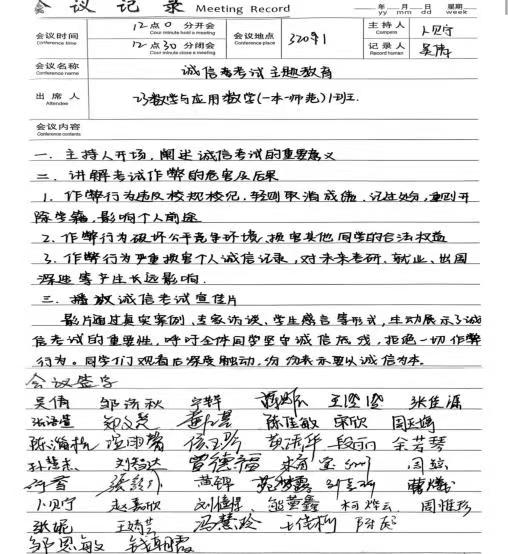 会议记录 Meeting Record
年 月 日 星期
yy mm dd week
会议时间 12点0分开会 会议地点 32091 主持人
Conference time Cour minute hold a meeting Conference place Compere
12点30分闭会 记录人 吴倩
Cour minute close a meeting Record human
会议名称 诚信考试主题教育
Conference name
出席人 23数学与应用数学(一本一师范)1班.
Attendee
会议内容
Conference contents
一、主持人开场,阐述诚信考试的重要意义
二、讲解考试作弊的危害及后果
1、作弊行为违反校规校纪,轻则取消成绩、记过处分,重则开
除学籍,影响个人前途
2、作弊行为破坏公平竞争环境,损害其他同学的合法权益
3、作弊行为严重损害个人诚信记录,对未来考研、就业、出国
深造等产生长远影响.
三、播放诚信考试宣传片
影片通过真实案例、专家访谈、学生感言等形式,生动展示了诚
信考试的重要性,呼吁全体同学坚守诚信底线,拒绝一切作弊
行为。同学们观看后深度触动,纷纷表示要以诚信为本。
会议签字
吴倩 邹沛秋 张佳源
陈佳敏 宋欣
段丽 余芳琴
刘智达 曾德福
黄铮
赵嘉欣 熊萤鑫 柯烨云 周雅珍
张妮 冯慧玲
邹思敏 钱朝霞